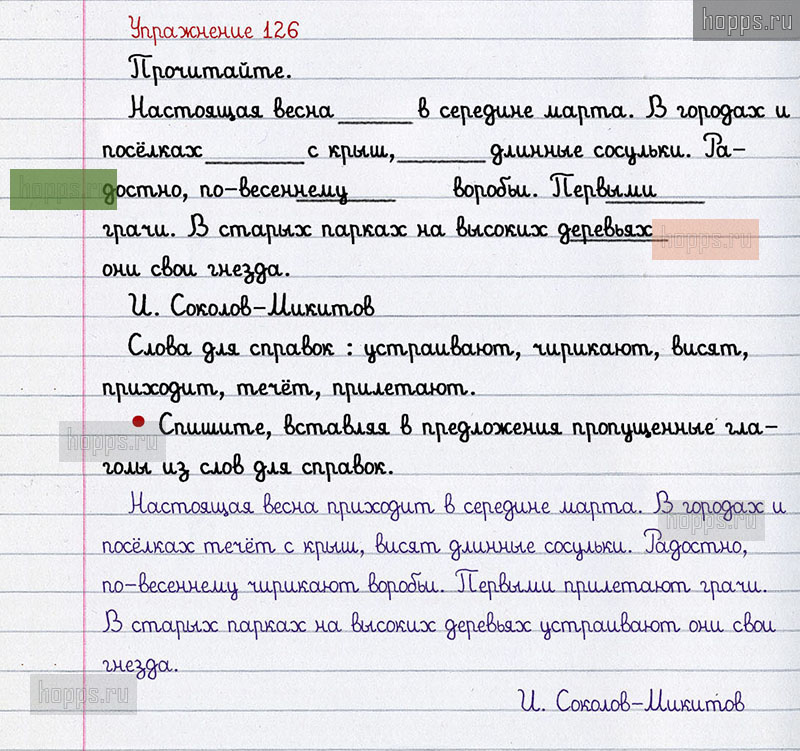 hopps.ru
Упражнение 126
Прочитайте.
Настоящая весна ______ в середине марта. В городах и
посёлках ________ с крыш, _______ длинные сосульки. Ра-
достно, по-весеннему ________ воробьи. Первыми ________
hopps.ru
грачи. В старых парках на высоких деревьях ________
hopps.ru
они свои гнезда.
И. Соколов-Микитов
Слова для справок : устраивают, чирикают, висят,
приходит, течёт, прилетают.
• Спишите, вставляя в предложения пропущенные гла-
hopps.ru
голы из слов для справок.
Настоящая весна приходит в середине марта. В городах и
hopps.ru
посёлках течёт с крыш, висят длинные сосульки. Радостно,
по-весеннему чирикают воробьи. Первыми прилетают грачи.
В старых парках на высоких деревьях устраивают они свои
гнезда.
hopps.ru
И. Соколов-Микитов